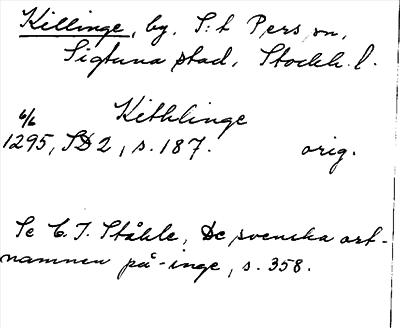 Killinge, by. S:t Pers sn,
Sigtuna stad, Stockh. l.
Kithlinge
6/6
1295, SD 2, s. 187. orig.
Se C. I. Ståhle, De svenska ort-
namnen på -inge, s. 358.